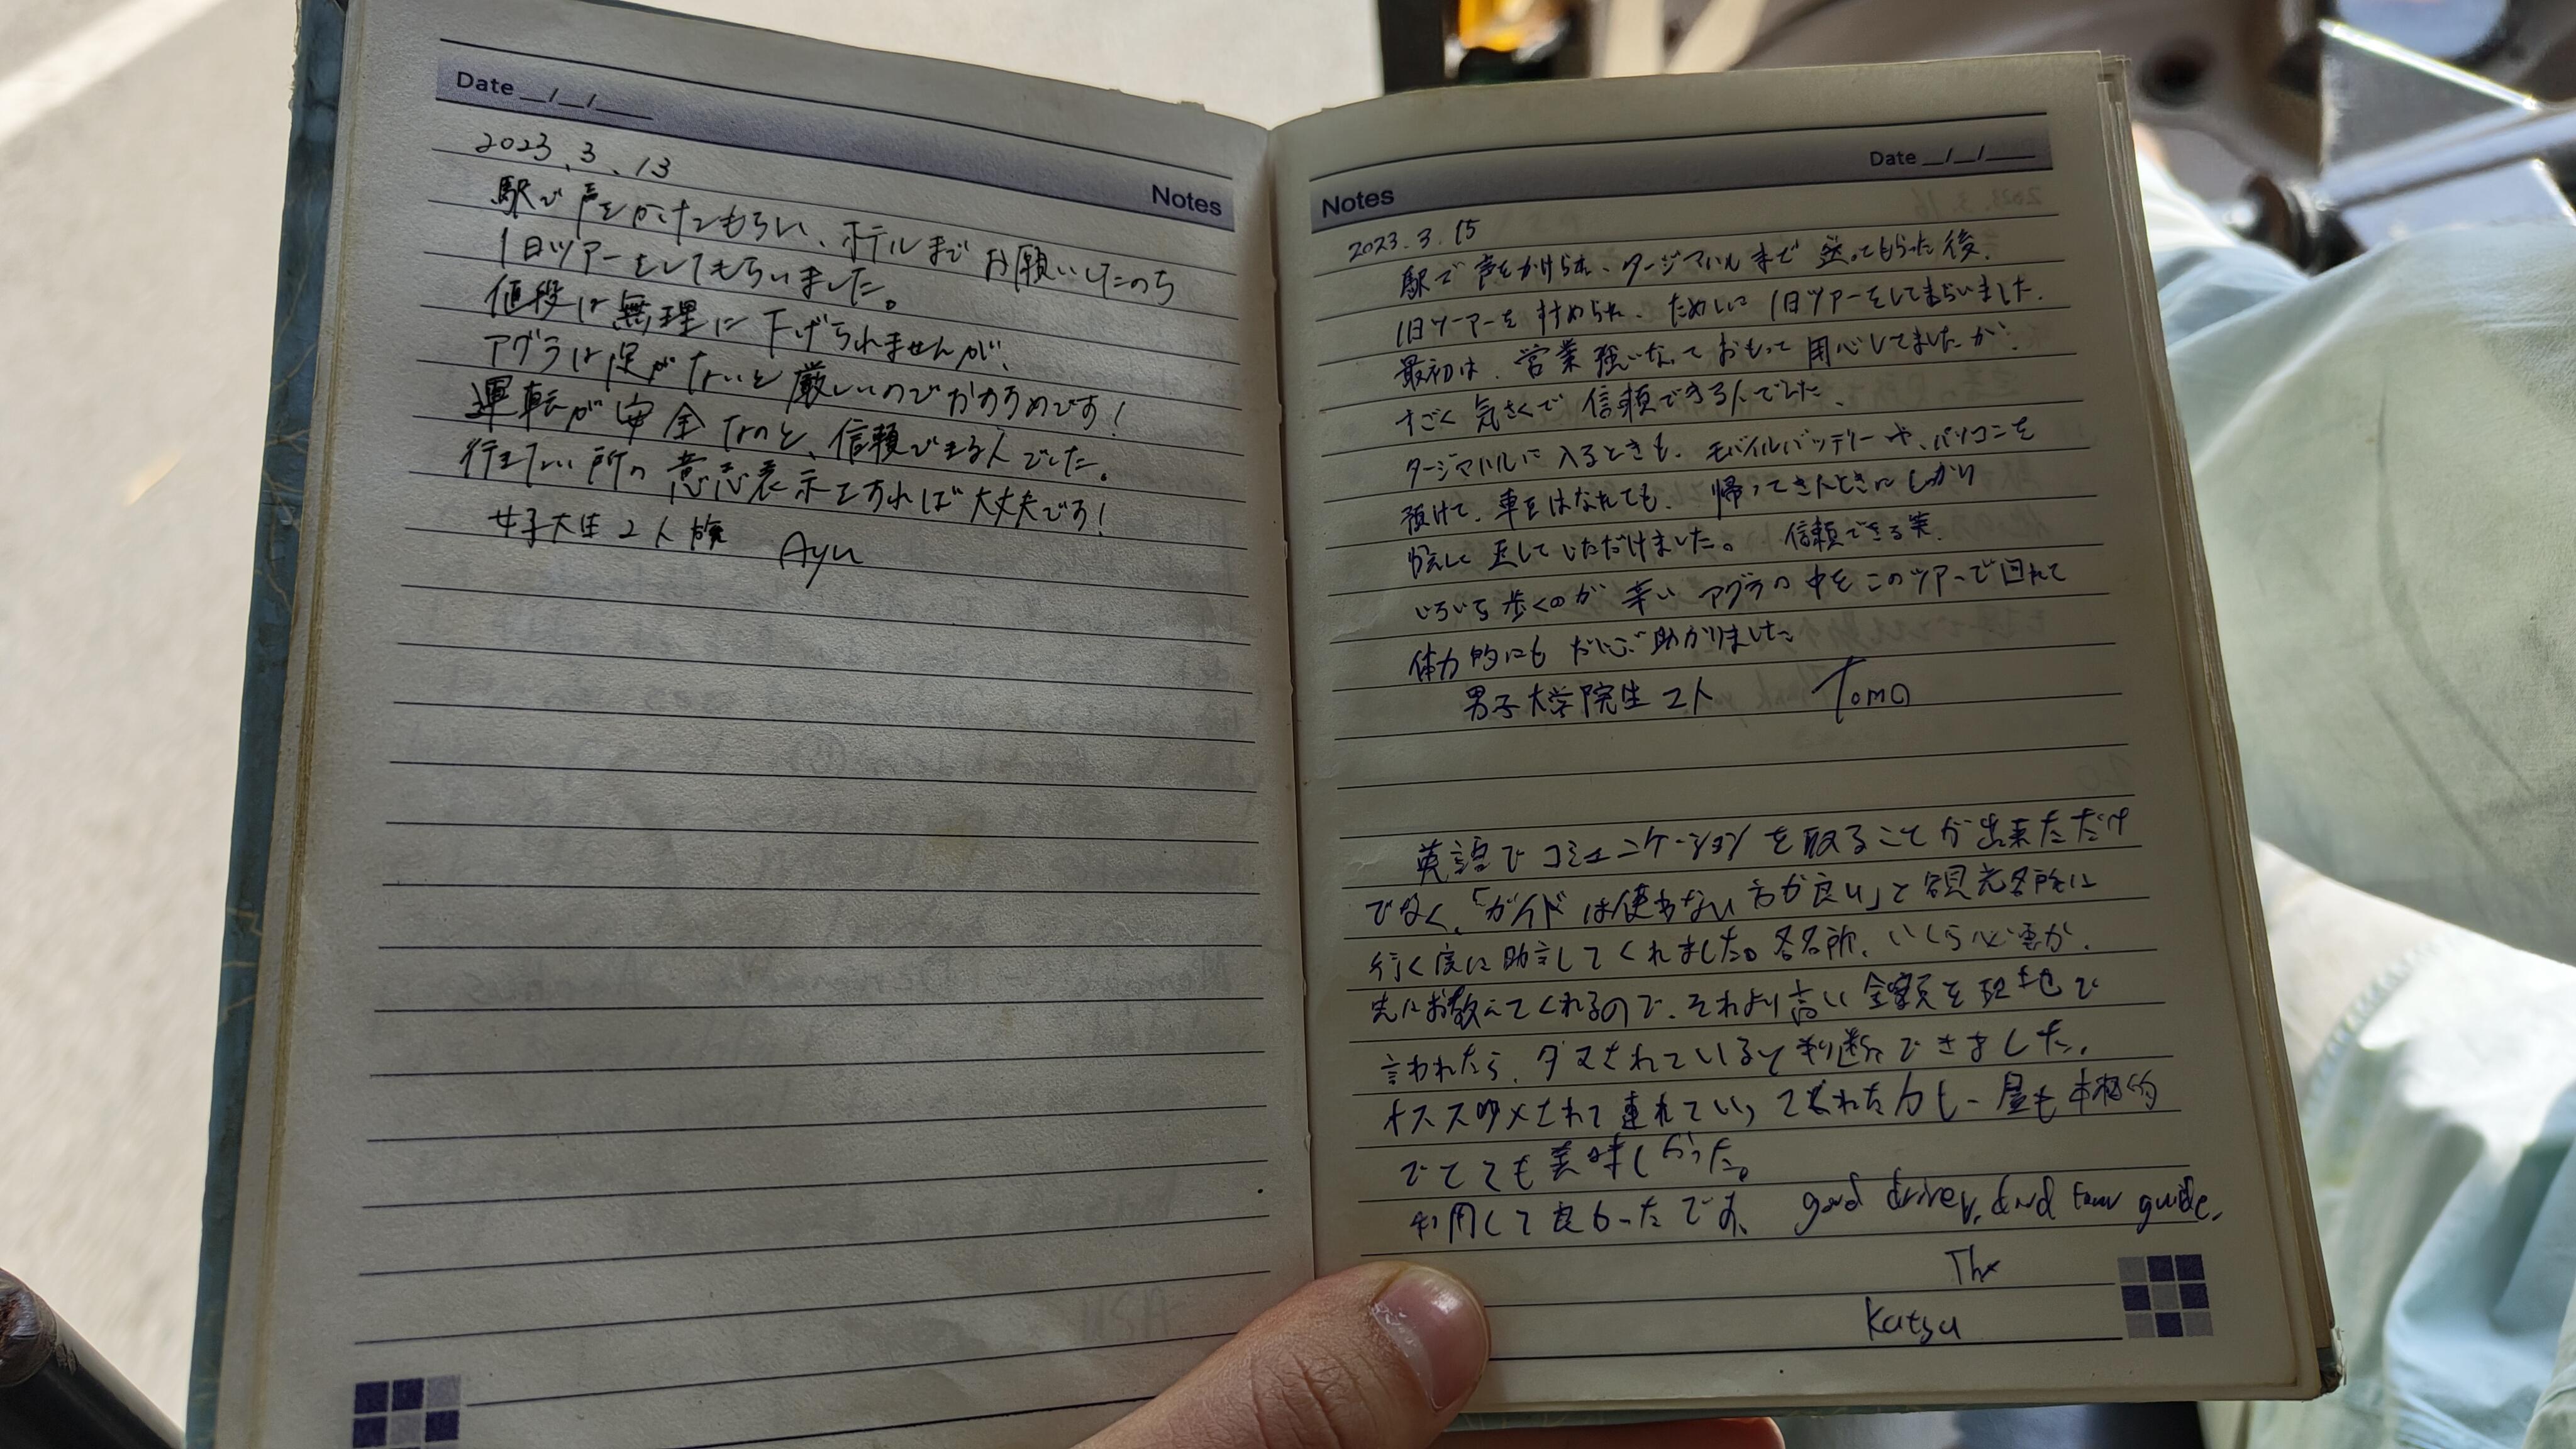 Date _/_/___
Notes
2023.3.13
駅で声をかけてもらい、ホテルまでお願いしたのち
1日ツアーをしてもらいました。
値段は無理に下げられませんが、
アグラは足がないと厳しいのでおすすめです!
運転が安全なのと、信頼できる人でした。
行きたい所の意志表示をすれば大丈夫です!
女子大生2人旅 Ayu
Notes
Date _/_/___
2023.3.15
駅で声をかけられ、タージマハルまで送ってもらった後、
1日ツーアーをすすめられ、ためしに1日ツアーをしてもらいました.
最初は、営業強いなっておもって用心してましたが、
すごく気さくで信頼できる人でした、
タージマハルに入るときも、モバイルバッテリーや、パソコンを
預けて、車をはなれても、帰ってきたときにしっかり
して 返していただけました。 信頼できる
歩くのが辛いアグラの中をこのツアーで回れて
体力的にも 助かりました
男子大学院生2人 Tomo
英語でコミュニケーションを取ることが出来ただけ
でなく、「ガイドは使わない方が良い」と観光名所に
行く度に助言してくれました。各名所、いくら必要か、
先にお教えてくれるので、それより高い金額を現地で
言われたら、ダマされていると判断できました。
オススメされて連れていってくれたカレー屋も本格的
でとても美味しかった。
利用して良かったです、 good driver, and tour guide,
Thx
Katsu